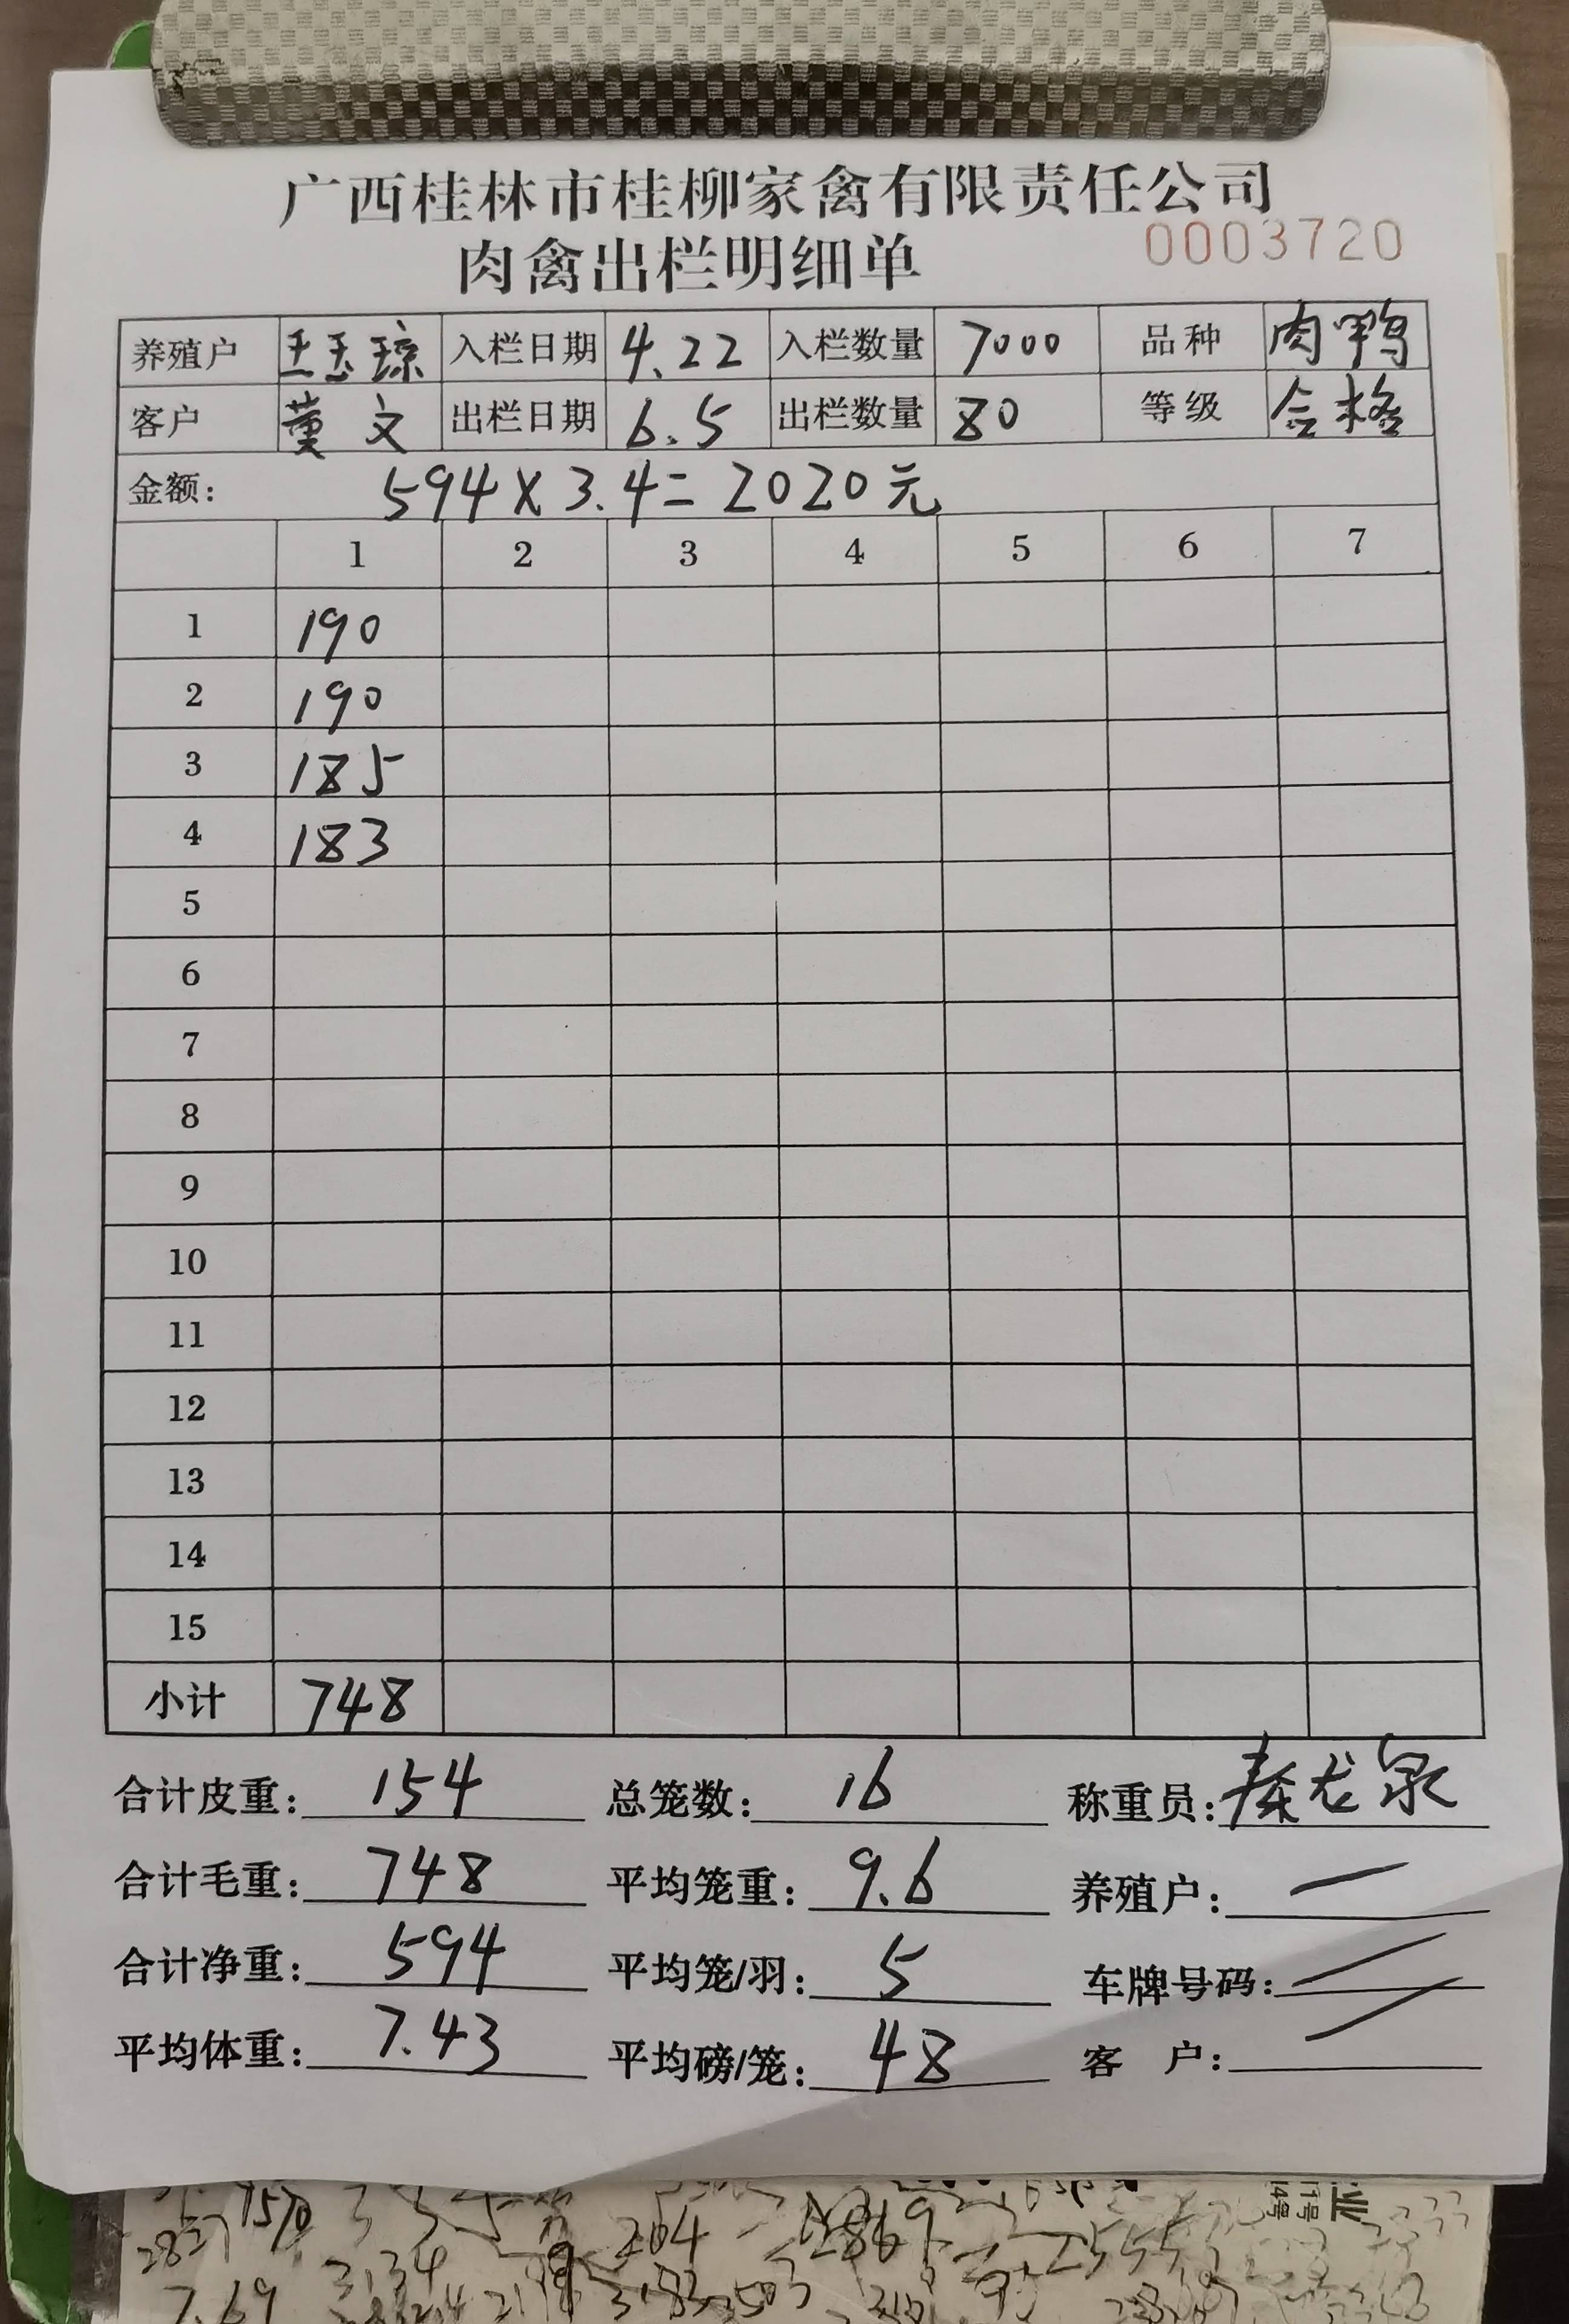 广西桂林市桂柳家禽有限责任公司
肉禽出栏明细单 0003720
养殖户 王玉琼 入栏日期 4.22 入栏数量 7000 品种 肉鸭
客户 董文 出栏日期 6.5 出栏数量 80 等级 合格
金额: 594×3.4=2020元
1 2 3 4 5 6 7
1 190
2 190
3 185
4 183
5
6
7
8
9
10
11
12
13
14
15
小计 748
合计皮重: 154 总笼数: 16 称重员: 秦龙泉
合计毛重: 748 平均笼重: 9.6 养殖户: —
合计净重: 594 平均笼/羽: 5 车牌号码: —
平均体重: 7.43 平均磅/笼: 48 客 户: —